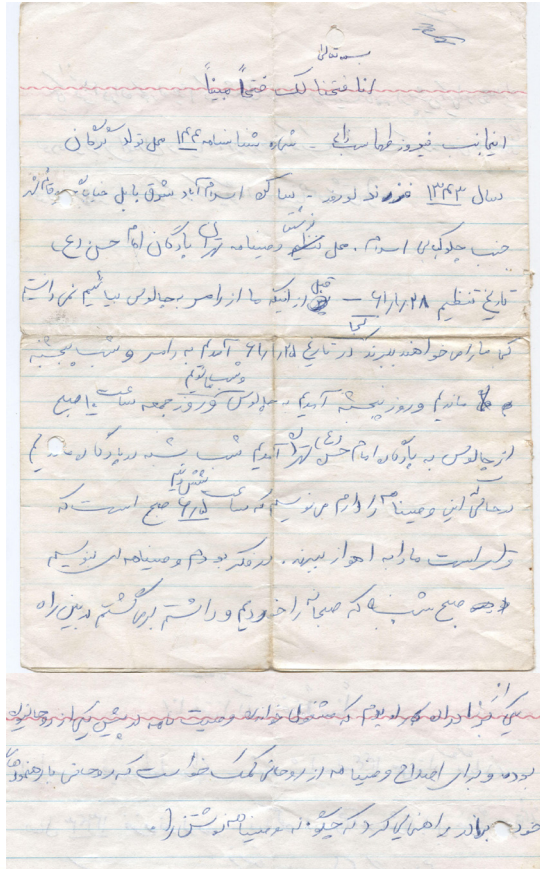 بسمه تعالی
انا فتحنا لک فتحاً مبیناً
اینجانب فیروز طهماسبی - شماره شناسنامه ۱۴۴ محل تولد
سال ۱۳۴۳ فرزند نوروز - ساکن اسلام آباد شرق بابل خیابان
جنب چلوکبابی اسلام. محل نوشتن وصیتنامه تهران پادگان امام حسن (ع)
تاریخ تنظیم ۶۱/۱/۲۸ - قبل از اینکه ما از رامسر به چالوس بیائیم نمی دانستیم
کجا ما را می خواهند ببرند در تاریخ ۶۱/۱/۲۵ آمدیم به رامسر و شب پنجشنبه
ماندیم و روز پنجشنبه آمدیم به چالوس و شب ماندیم و روز جمعه ساعت ۱۰ صبح
از چالوس به پادگان امام حسن (ع) تهران آمدیم شب شنبه در پادگان ماندیم
در حالیکه این وصیتنامه را دارم می نویسم که ساعت ۶/۵ صبح است که
قرار است ما را به اهواز ببرند. در فکر بودم وصیتنامه ای بنویسم
صبح شنبه که صبحانه را خوردیم و داشتم برمی گشتم در بین راه
یکی از برادران را دیدم که مشغول خواندن وصیت نامه در پیش یکی از روحانیون
بوده و برای اصلاح وصیتنامه از روحانی کمک خواست که روحانی با رهنمودهای
خود برادر را راهنمایی کرد که چگونه وصیتنامه نوشتن را